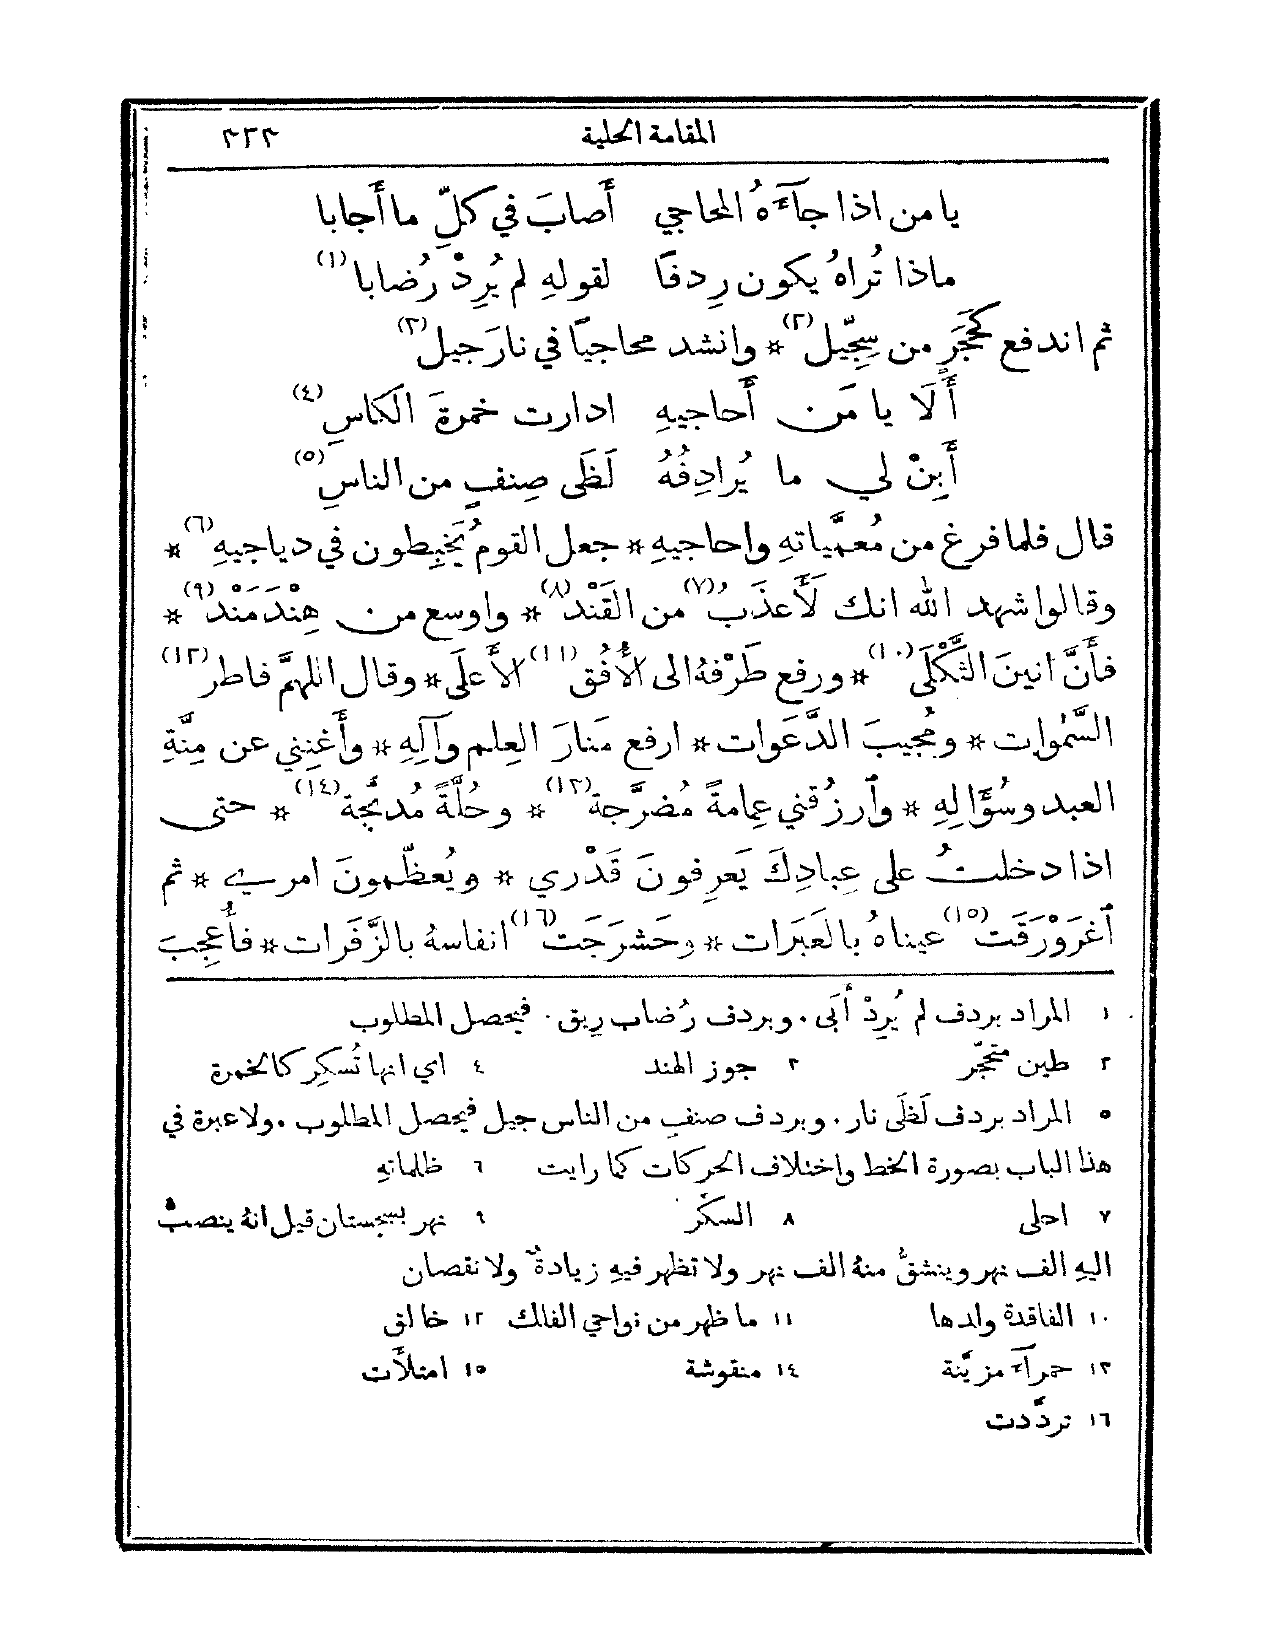 المقامة الحلية ٣٢٣
يا من اذا جآءَهُ المحاجي أَصابَ في كلِّ ما أَجابا
ماذا تُراهُ يكون رِدفًا لقولهِ لم يُرِدْ رُضابا(١)
ثم اندفع كحَجَرٍ من سِجِّيل(٢) * وانشد محاجيًا في نارَجيل(٣)
أَلَا يا مَن أُحاجيهِ ادارت خمرةَ الكاسِ(٤)
أَبِنْ لي ما يُرادِفُهُ لَظَى صِنفٍ من الناسِ(٥)
قال فلما فرغ من مُعمَّياتهِ واحاجيهِ * جعل القوم يَخبِطون في دياجيهِ(٦) *
وقالوا شهِد الله انك لَأَعذَبُ(٧) من القَنْد(٨) * واوسع من هِنْدَمَنْد(٩) *
فأَنَّ انينَ الثَّكْلَى(١٠) * ورفع طَرْفهُ الى الأُفُق(١١) الأَعلَى * وقال اللهمَّ فاطر(١٢)
السَّموٰات * ومُجيبَ الدَّعَوات * ارفع مَنارَ العِلم وآلِهِ * وأَغنِني عن مِنَّةِ
العبد وسُؤَالِهِ * وأرزُقني عِمامةً مُضرَّجة(١٣) * وحُلَّةً مُدبَّجة(١٤) * حتى
اذا دخلتُ على عِبادِكَ يَعرِفونَ قَدْري * ويُعظِّمونَ امري * ثم
أغرَوْرَقَت(١٥) عيناهُ بالعَبَرات * وحَشرَجَت(١٦) انفاسهُ بالزَّفَرات * فأُعجِبَ
١ المراد بردف لم يُرِدْ أَبَى. وبردف رُضاب ريق. فيحصل المطلوب
٢ طين متحجّر ٣ جوز الهند ٤ اي انها تُسكِر كالخمرة
٥ المراد بردف لَظَى نار. وبردف صنفٍ من الناس جيل فيحصل المطلوب. ولا عبرة في
هذا الباب بصورة الخط واختلاف الحركات كما رايت ٦ ظلماتهِ
٧ احلى ٨ السكَّر ٩ نهر بسجستان قيل انهُ ينصبُّ
اليهِ الف نهر وينشقُّ منهُ الف نهر ولا تظهر فيهِ زيادةٌ ولا نقصان
١٠ الفاقدة ولدها ١١ ما ظهر من نواحي الفلك ١٢ خالق
١٣ حمرآء مزيَّنة ١٤ منقوشة ١٥ امتلأَت
١٦ تردَّدت